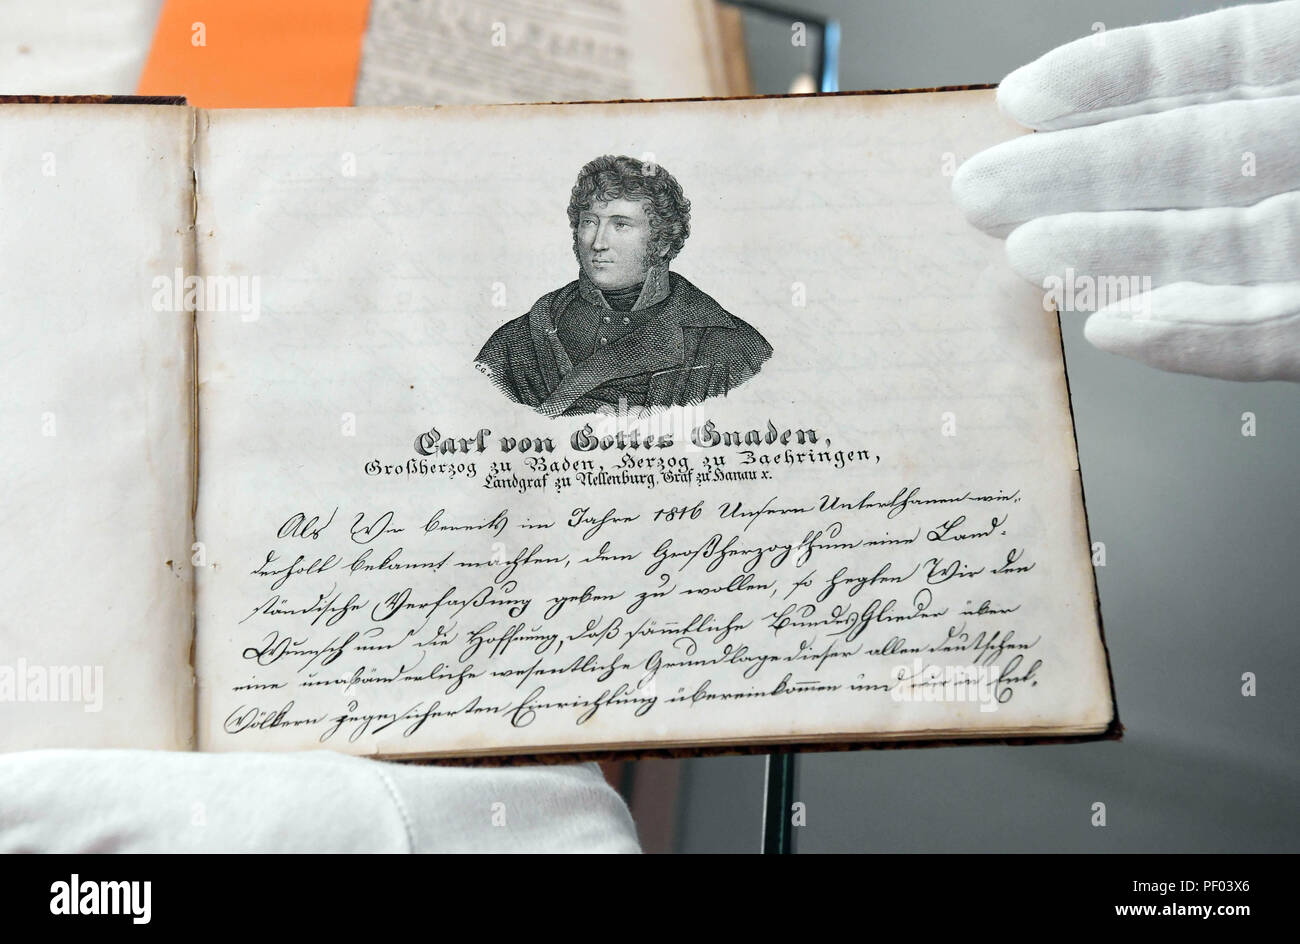 C.G.f.
Carl von Gottes Gnaden,
Großherzog zu Baden, Herzog zu Zaehringen,
Landgraf zu Nellenburg, Graf zu Hanau x.
Als Wir bereits im Jahre 1816 Unsern Unterthanen wie-
derholt bekannt machten, dem Großherzogthum eine Land-
ständische Verfaßung geben zu wollen, so hegten Wir den
Wunsch und die Hoffnung, daß sämmtliche BundesGlieder über
eine unabänderliche wesentliche Grundlage dieser allen deutschen
Völkern zugesicherten Einrichtung übereinkommen und nur in Ent-
alamy
alamy stock photo
Image ID: PF03X6
www.alamy.com